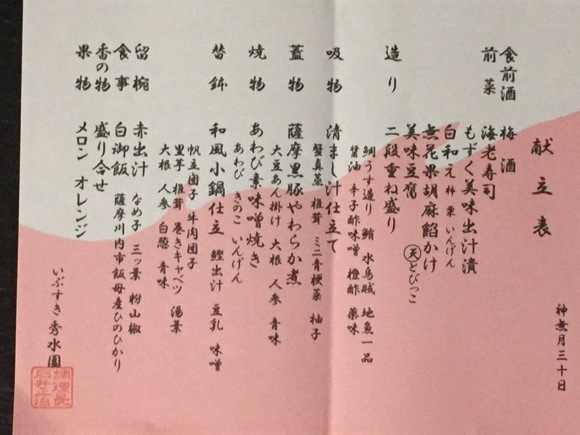 献立表
神無月三十日
食前酒 梅酒
前菜 海老寿司
もずく美味出汁漬
白和え 柿 栗 いんげん
無花果胡麻餡かけ
美味豆富 天とびっこ
造り 二段重ね盛り
鯛うす造り 鮪 水烏賊 地魚一品
醤油 辛子酢味噌 橙酢 薬味
吸物 清まし汁仕立て
蟹真蒸 椎茸 ミニ青梗菜 柚子
蓋物 薩摩黒豚やわらか煮
大豆あん掛け 大根 人参 青味
焼物 あわび素味噌焼き
あわび きのこ いんげん
替鉢 和風小鍋仕立 鰹出汁 豆乳 味噌
帆立団子 牛肉団子
里芋 椎茸 巻きキャベツ 湯葉
大根 人参 白葱 青味
留椀 赤出汁 なめ子 三ッ葉 粉山椒
食事 白御飯 薩摩川内市飯母産ひのひかり
香の物 盛り合せ
果物 メロン オレンジ
いぶすき 秀水園